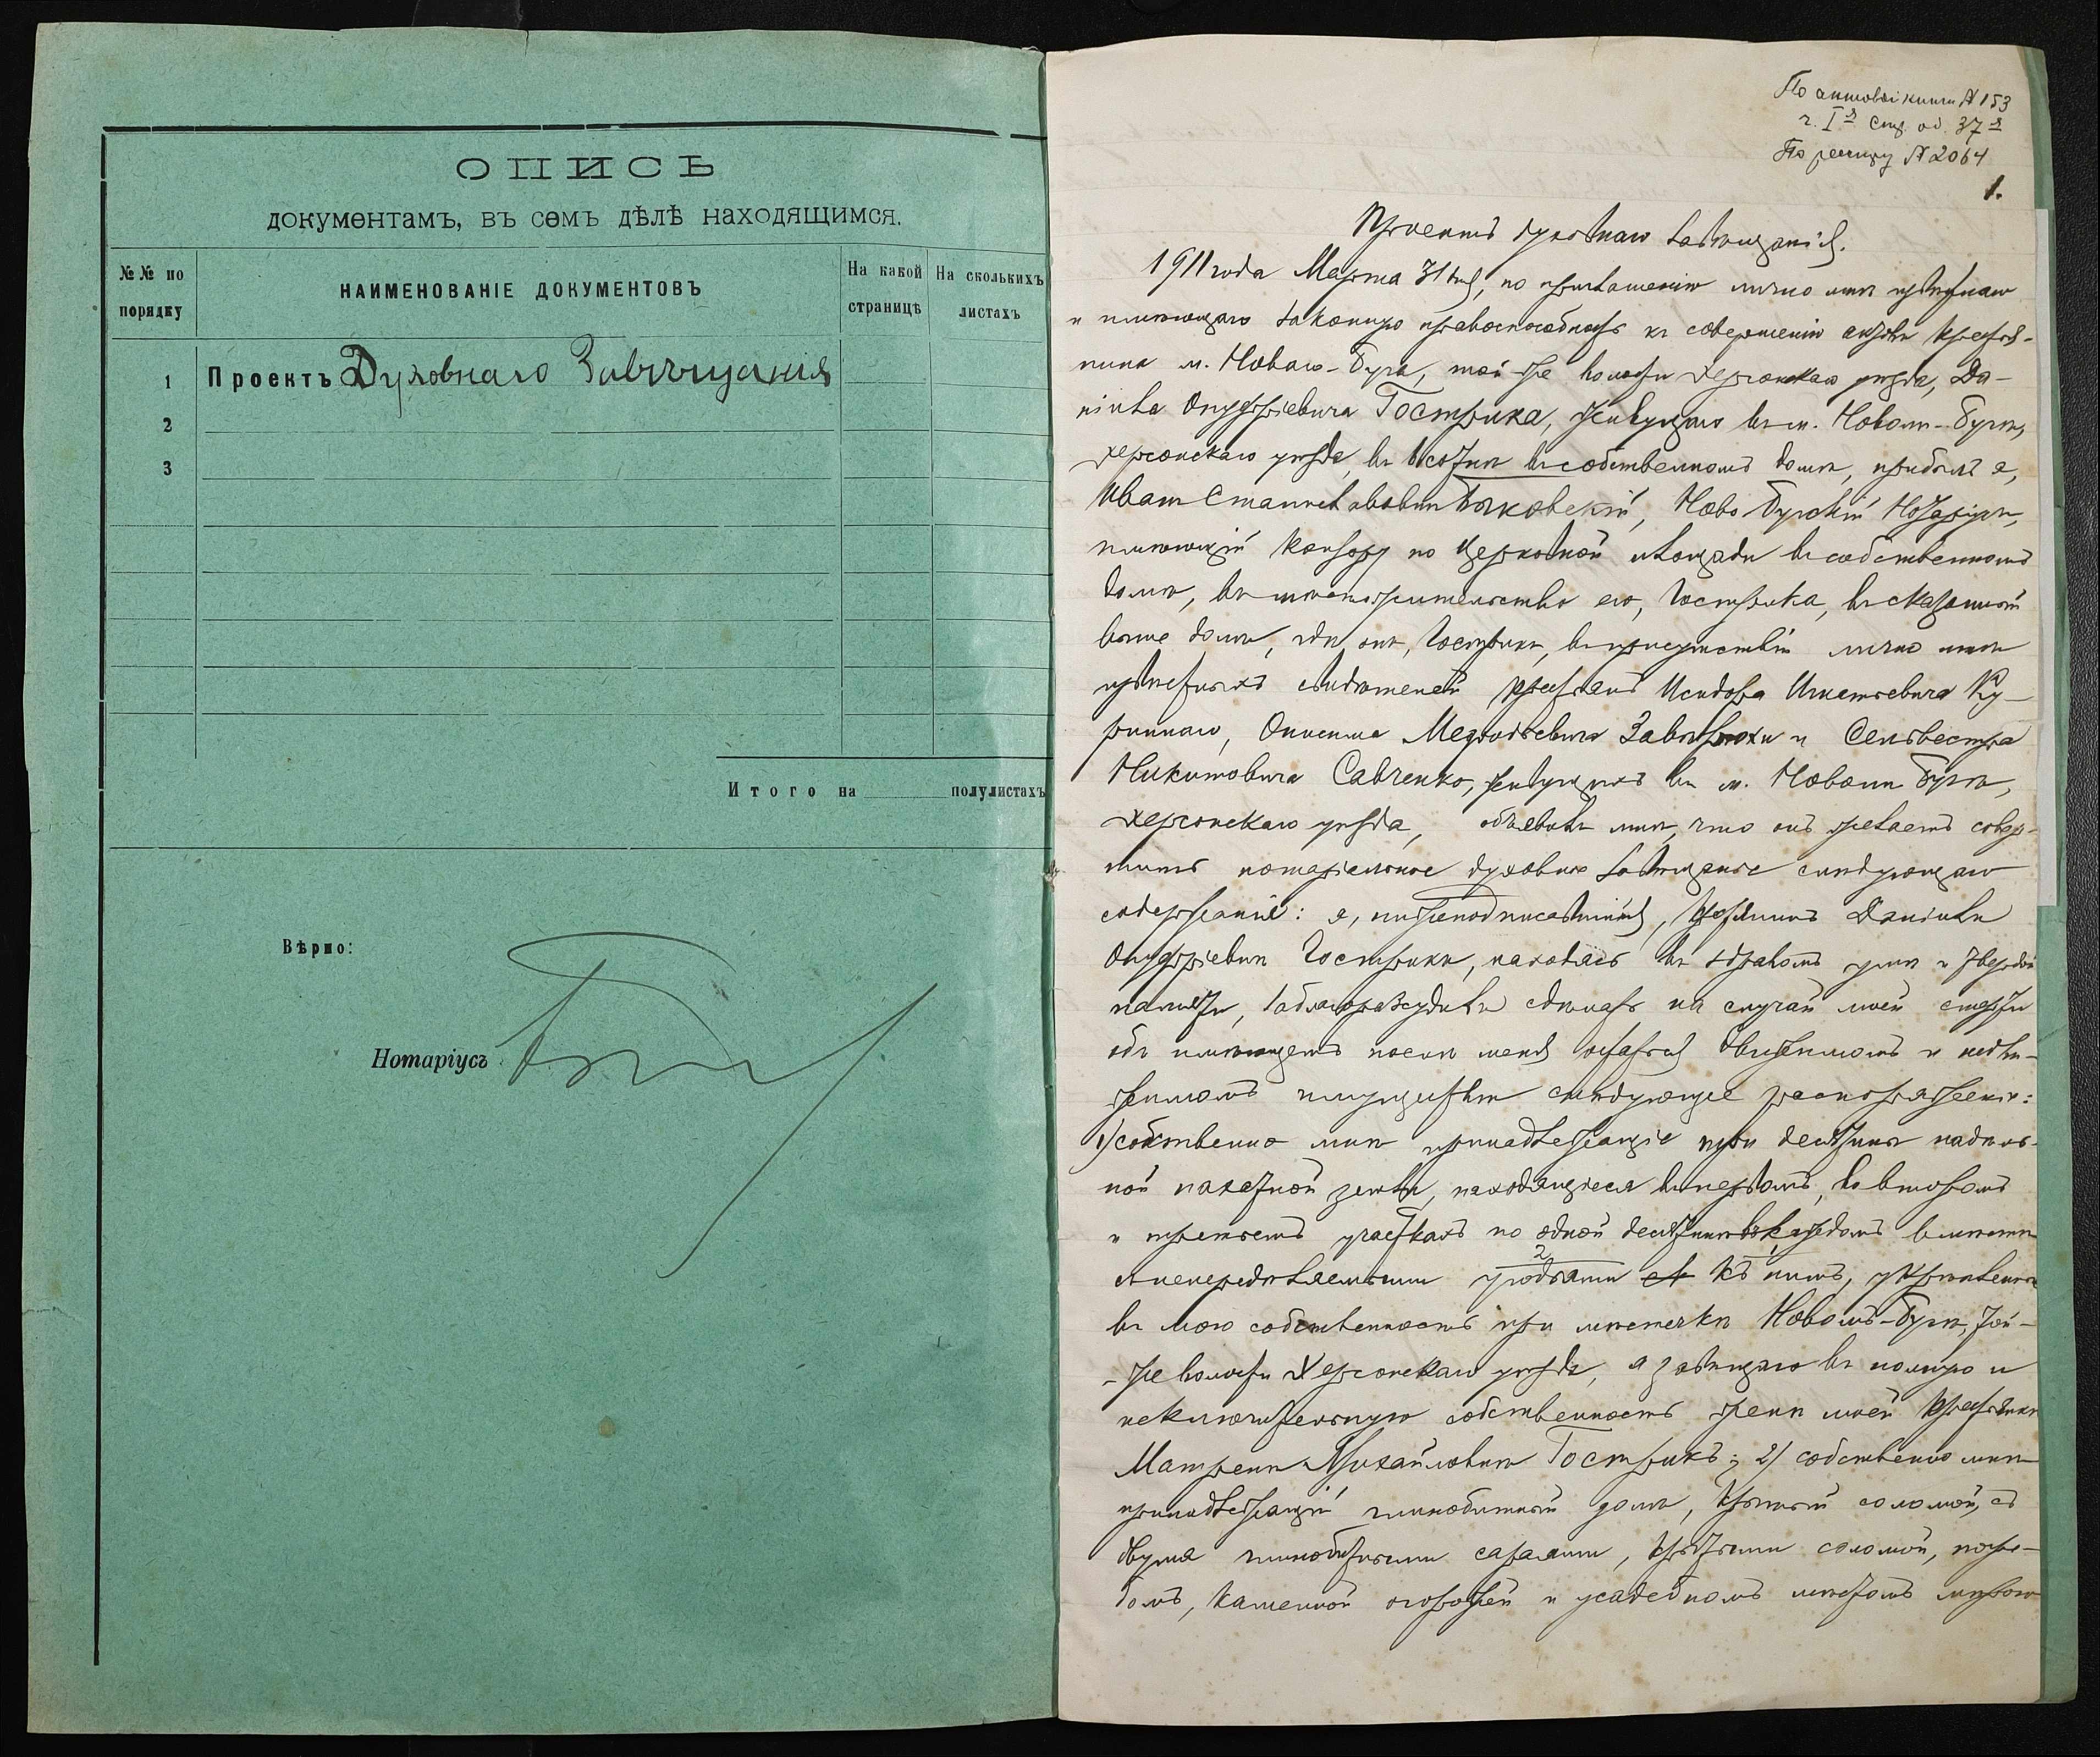 ОПИСЬ
документамъ, въ семъ дѣлѣ находящимся.
№№ по порядку
НАИМЕНОВАНІЕ ДОКУМЕНТОВЪ
На какой страницѣ
На сколькихъ листахъ
1 Проектъ Духовнаго Завѣщанія
2
3
Итого на полулистахъ
Вѣрно:
Нотаріусъ
По актовой книгѣ № 153
ч. I-я Стр. об. 37-я
По реестру № 2064
1.
Проектъ духовнаго завѣщанія.
1911 года Марта 31 дня, по приглашенію лично мнѣ извѣстнаго
и имѣющаго законную правоспособность къ совершенію актовъ крестья-
нина м. Новаго-Буга, той-же волости Херсонскаго уѣзда, Да-
ніила Онуфріевича Гострика, живущаго въ м. Новомъ-Бугѣ,
Херсонскаго уѣзда, въ собственномъ домѣ, прибылъ я,
Иванъ Станиславовичъ Ново Бугскій Нотаріусъ,
имѣющій контору по Церковной площади въ собственномъ
домѣ, въ мѣстожительство его, Гострика, въ сказанный
выше домъ, гдѣ онъ, Гострикъ, въ присутствіи лично мнѣ
извѣстныхъ свидѣтелей крестьянъ Исидора Игнатьевича Ку-
риннаго, Онисима Меѳодьевича Завирюхи и Сельвестра
Никитовича Савченко, живущихъ въ м. Новомъ Бугѣ,
Херсонскаго уѣзда, объявилъ мнѣ, что онъ желаетъ совер-
шить нотаріальное духовное завѣщаніе слѣдующаго
содержанія: я, нижеподписавшійся, крестьянинъ Даніилъ
Онуфріевичъ Гострикъ, находясь въ здравомъ умѣ и твердой
памяти, заблагоразсудилъ сдѣлать на случай моей смерти
объ имѣющемъ послѣ меня остаться движимомъ и недви-
жимомъ имуществѣ слѣдующее распоряженіе:
1) собственно мнѣ принадлежащіе три десятины надѣль-
ной пахатной земли, находящіеся въ первомъ, во второмъ
и третьемъ участкахъ по одной десятинѣ въ каждомъ вмѣстѣ
съ нераздѣляемыми угодьями къ нимъ, укрѣпленныя
въ мою собственность при мѣстечкѣ Новомъ-Бугѣ, той-
-же волости Херсонскаго уѣзда, я завѣщаю въ полную и
исключительную собственность женѣ моей крестьянкѣ
Матренѣ Михайловнѣ Гострикъ; 2) собственно мнѣ
принадлежащій глинобитный домъ, крытый соломой, съ
двумя глинобитными сараями, крытыми соломой, погре-
бомъ, каменной огорожей и усадебнымъ мѣстомъ мѣрою